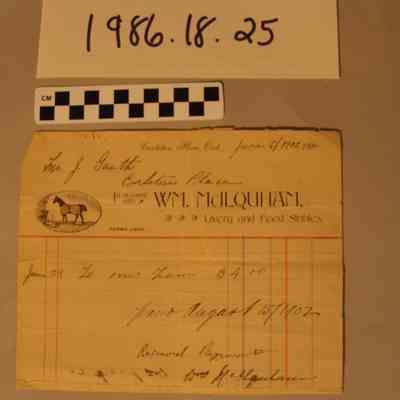 1986.18.25
CM
Carleton Place, Ont. June 5/1902
J. Gauth
Carleton Place
WM. McILQUHAM,
Livery and Feed Stables
June To one Team $4.00
Paid August 15/1902
Received Payment
Wm McIlquham